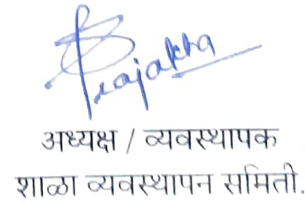 Prajakta
अध्यक्ष / व्यवस्थापक
शाळा व्यवस्थापन समिती.